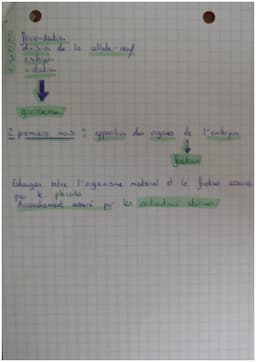 1 Fécondation
2 division de la cellule-œuf
3 embryon
4 nidation
grossesse
2 premiers mois : apparition des organes de l'embryon
foetus
Echanges entre l'organisme maternel et le foetus assurés
par le placenta
Accouchement assuré par les contractions utérines